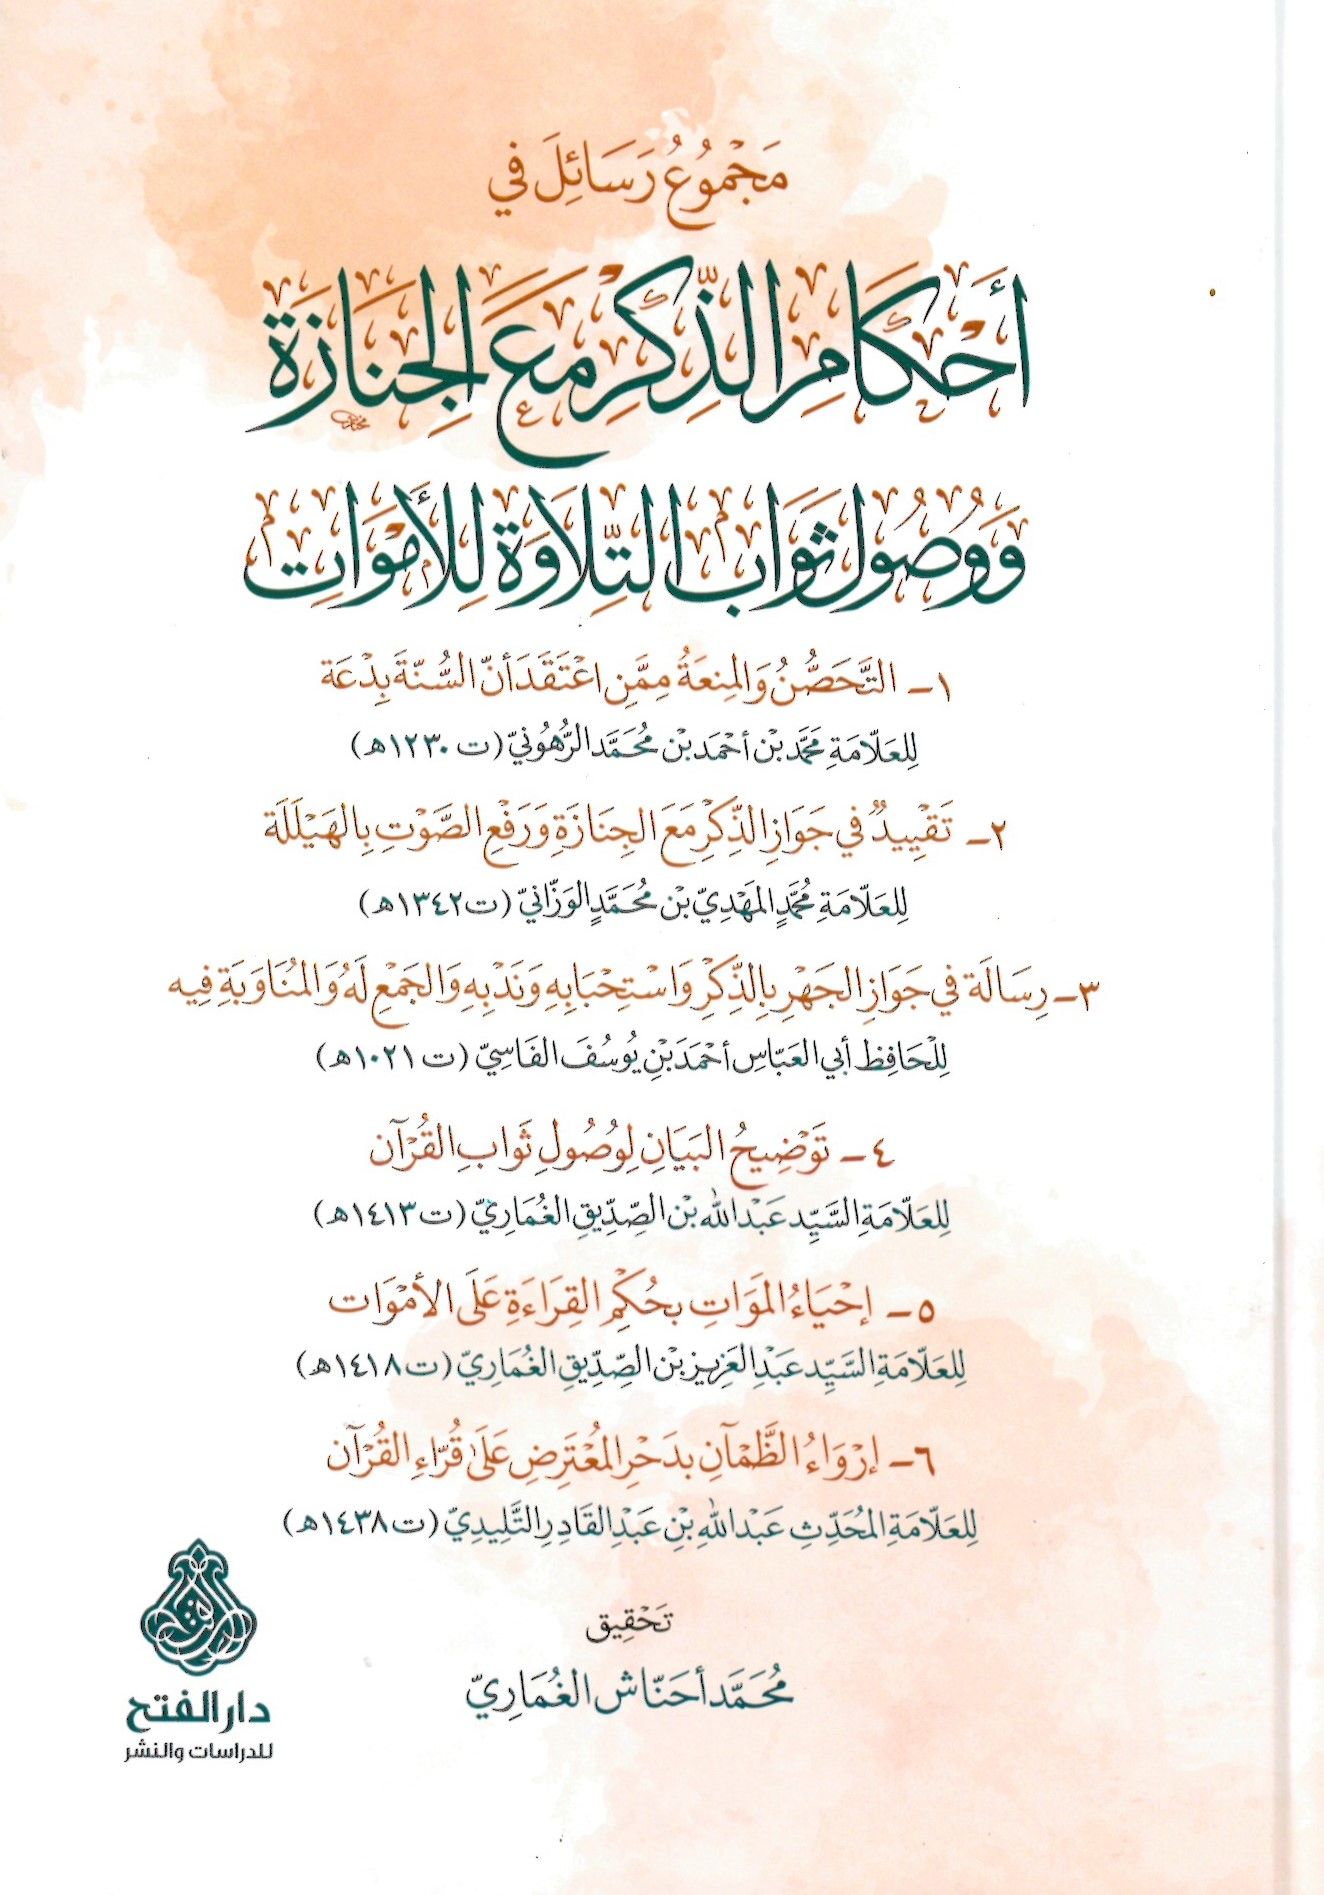 مَجْمُوعُ رَسَائِلَ فِي
أَحْكَامِ الذِّكْرِ مَعَ الجِنَازَةِ
وَوُصُولِ ثَوَابِ التِّلَاوَةِ لِلأَمْوَاتِ
١- التَّحَصُّنُ وَالمِنعَةُ مِمَّنِ اعْتَقَدَ أنّ السُّنّةَ بِدْعَة
لِلعَلّامَةِ مُحَمَّد بْن أحْمَد بْن مُحَمَّد الرُّهُونيّ (ت ١٢٣٠هـ)
٢- تَقْيِيدٌ في جَوَازِ الذِّكْرِ مَعَ الجِنَازَةِ وَرَفْعِ الصَّوْتِ بِالهَيْلَلَة
لِلعَلّامَةِ مُحَمَّدٍ المَهْدِيّ بْن مُحَمَّدٍ الوَزّانيّ (ت ١٣٤٢هـ)
٣- رِسَالَة في جَوَازِ الجَهْرِ بِالذِّكْرِ وَاسْتِحْبَابِهِ وَنَدْبِهِ وَالجَمْعِ لَهُ وَالمُنَاوَبَةِ فِيه
لِلْحَافِظ أبي العَبّاس أحْمَدَ بْنِ يُوسُفَ الفَاسِيّ (ت ١٠٢١هـ)
٤- تَوْضِيحُ البَيَانِ لِوُصُولِ ثَوَابِ القُرْآن
لِلعَلّامَةِ السَّيِّد عَبْد الله بْن الصِّدِّيقِ الغُمَارِيّ (ت ١٤١٣هـ)
٥- إحْيَاءُ المَوَاتِ بحُكْمِ القِرَاءَةِ عَلَى الأمْوَات
لِلعَلّامَةِ السَّيِّد عَبْدِ العَزِيز بْن الصِّدِّيقِ الغُمَارِيّ (ت ١٤١٨هـ)
٦- إرْوَاءُ الظَّمْآنِ بدَحْرِ المُعْتَرِضِ عَلَى قُرّاءِ القُرْآن
لِلعَلّامَةِ المُحَدِّثِ عَبْد اللهِ بْنِ عَبْدِ القَادِرِ التَّلِيدِيّ (ت ١٤٣٨هـ)
تَحْقِيق
مُحَمَّد أحَنّاش الغُمَارِيّ
دار الفتح
للدراسات والنشر